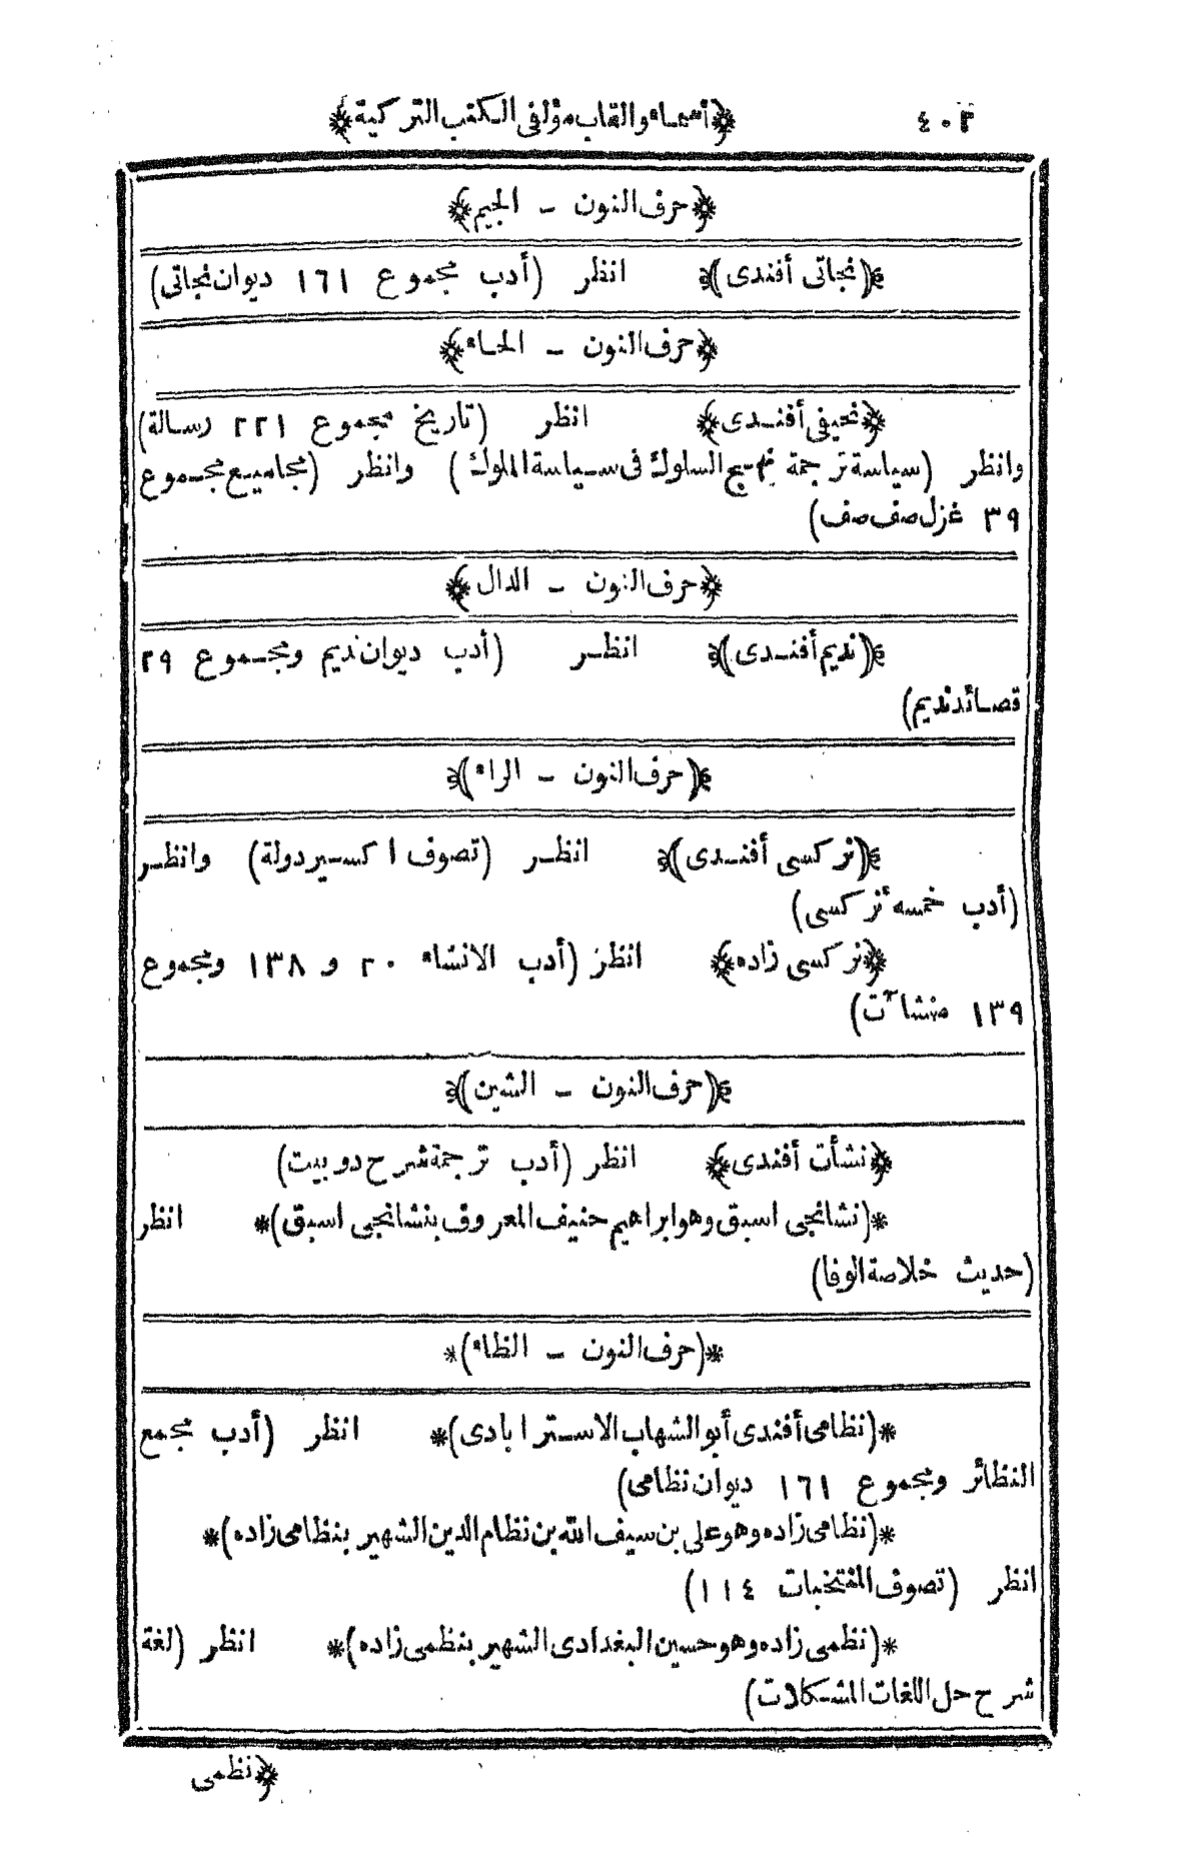 ٤٠٢ ﴿أسماء والقاب مؤلفى الكتب التركية﴾
﴿حرف النون – الجيم﴾
﴿نجاتى أفندى﴾ انظر (أدب مجموع ١٦١ ديوان نجاتى)
﴿حرف النون – الحاء﴾
﴿نحيفى أفندى﴾ انظر (تاريخ مجموع ٢٢١ رسالة)
وانظر (سياسة ترجمة نهج السلوك فى سياسة الملوك) وانظر (مجاميع مجموع
٣٩ غزل صف صف)
﴿حرف النون – الدال﴾
﴿نديم أفندى﴾ انظر (أدب ديوان نديم ومجموع ٢٩
قصائد نديم)
﴿حرف النون – الراء﴾
﴿نركسى أفندى﴾ انظر (تصوف اكسير دولة) وانظر
(أدب خمسهٔ نركسى)
﴿نركسى زاده﴾ انظر (أدب الانشاء ٢٠ و ١٣٨ ومجموع
١٣٩ منشآت)
﴿حرف النون – الشين﴾
﴿نشأت أفندى﴾ انظر (أدب ترجمة شرح دو بيت)
*(نشانجى اسبق وهو ابراهيم حنيف المعروف بنشانجى اسبق)* انظر
(حديث خلاصة الوفا)
*(حرف النون – الظاء)*
*(نظامى أفندى أبو الشهاب الاسترابادى)* انظر (أدب مجمع
النظائر ومجموع ١٦١ ديوان نظامى)
*(نظامى زاده وهو على بن سيف الله بن نظام الدين الشهير بنظامى زاده)*
انظر (تصوف المنتخبات ١١٤)
*(نظمى زاده وهو حسين البغدادى الشهير بنظمى زاده)* انظر (لغة
شرح حل اللغات المشكلات)
﴿نظمى